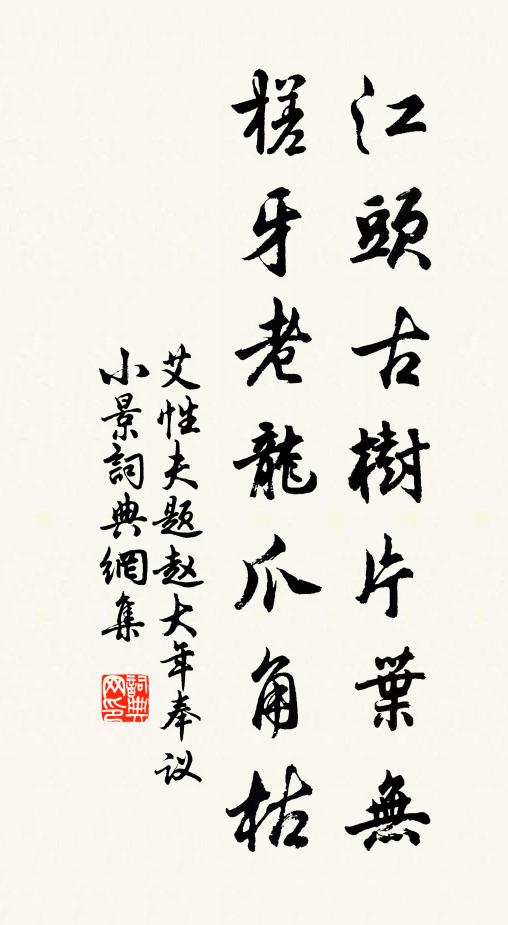 江頭古樹片葉無
槎牙老龍爪角枯
艾性夫题赵大年奉议
小景詞典網集
詞典网印